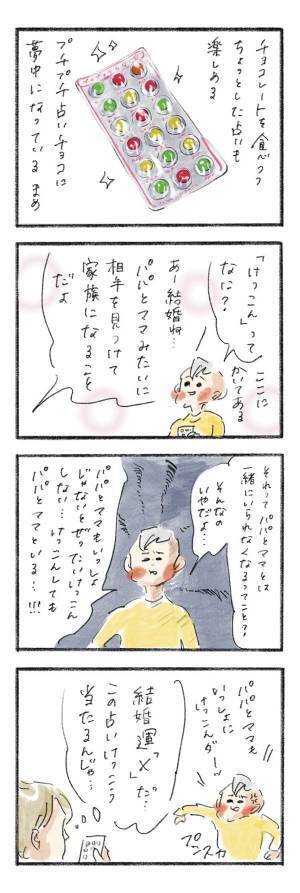 チョコレートを食べつつ
ちょっとした占いも
楽しめる
プチプチ占いチョコに
夢中になっている まめ
ここに
かいてある
「けっこん」って
なに？
あー結婚ね…
パパとママみたいに
相手を見つけて
家族になること
だよ
それってパパとママとは
一緒にいられなくなるってこと？
そんなの
いやだよ…
パパとママもいっしょ
じゃないとぜったいけっこん
しない…けっこんしても
パパとママといる…!!!
パパとママも
いっしょに
けっこんダーッ
プンスカ
結婚運「×」だ…
この占いけっこう
当たるんじゃ…